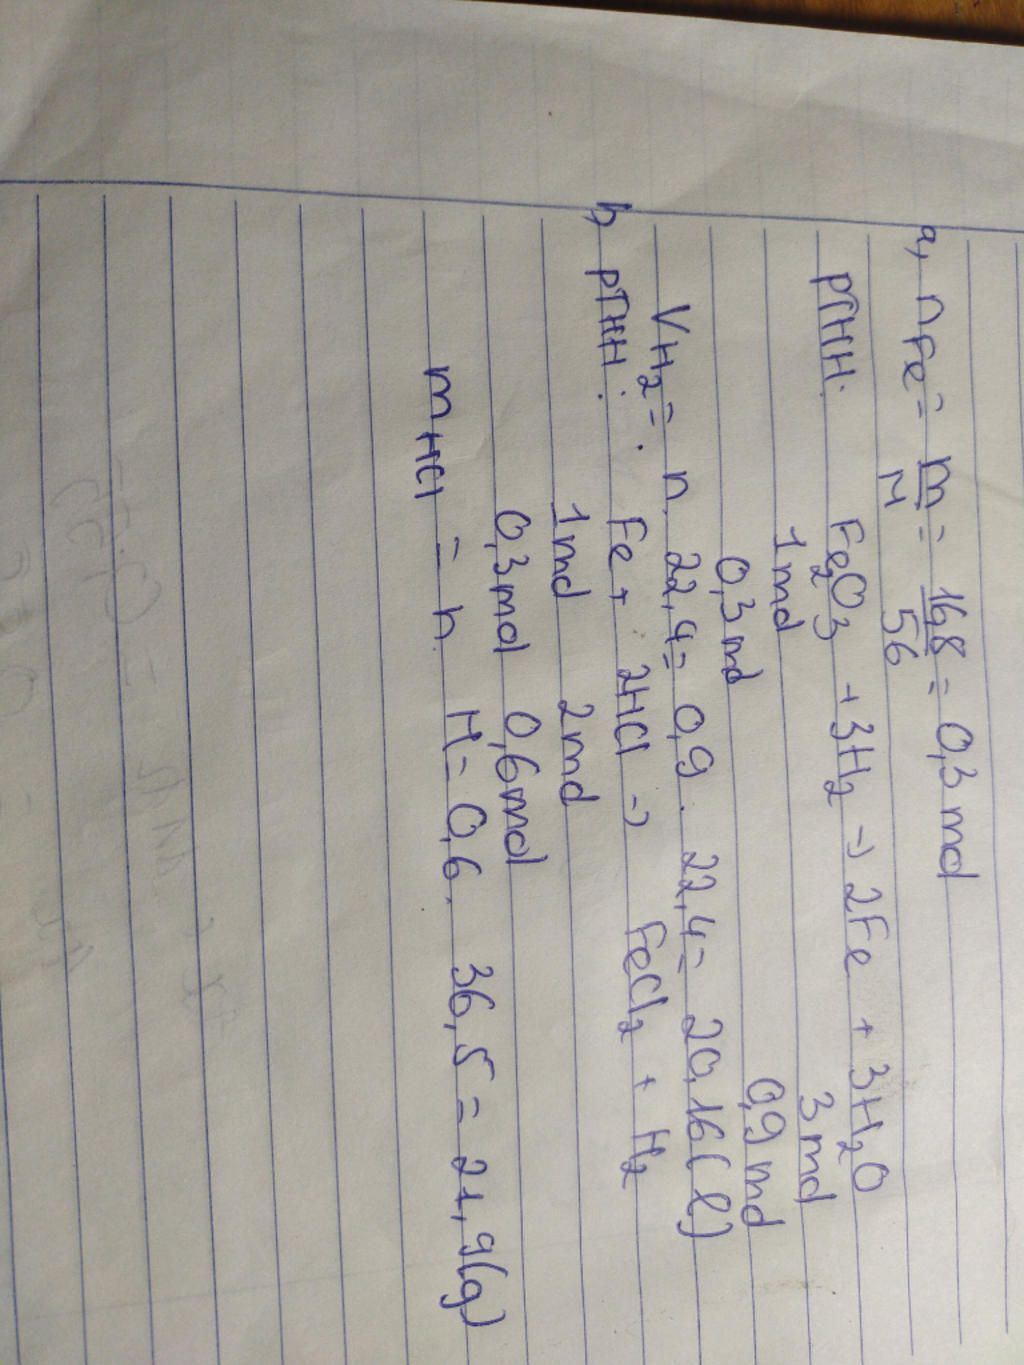 a, nFe = m/M = 16,8/56 = 0,3 mol
PTHH: Fe₂O₃ + 3H₂ → 2Fe + 3H₂O
1mol 3mol
0,3mol 0,9mol
VH₂ = n. 22,4 = 0,9 . 22,4 = 20,16 (l)
b, PTHH: Fe + 2HCl → FeCl₂ + H₂
1mol 2mol
0,3mol 0,6mol
mHCl = n. M = 0,6. 36,5 = 21,9(g)